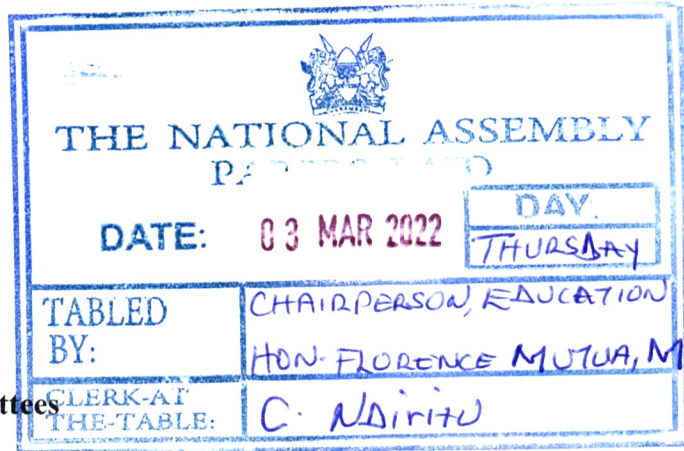 THE NATIONAL ASSEMBLY
DATE: 03 MAR 2022
DAY.
THURSDAY
TABLED BY:
CHAIRPERSON, EDUCATION
HON. FLORENCE MUTUA, M
ttees
CLERK-AT THE-TABLE:
C. NDIRITU